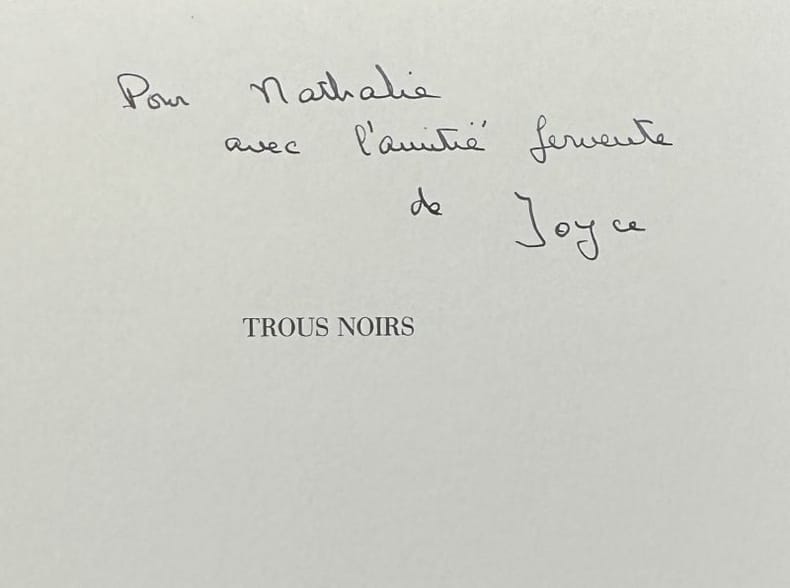 Pour Nathalie
avec l'amitié fervente
de Joyce
TROUS NOIRS